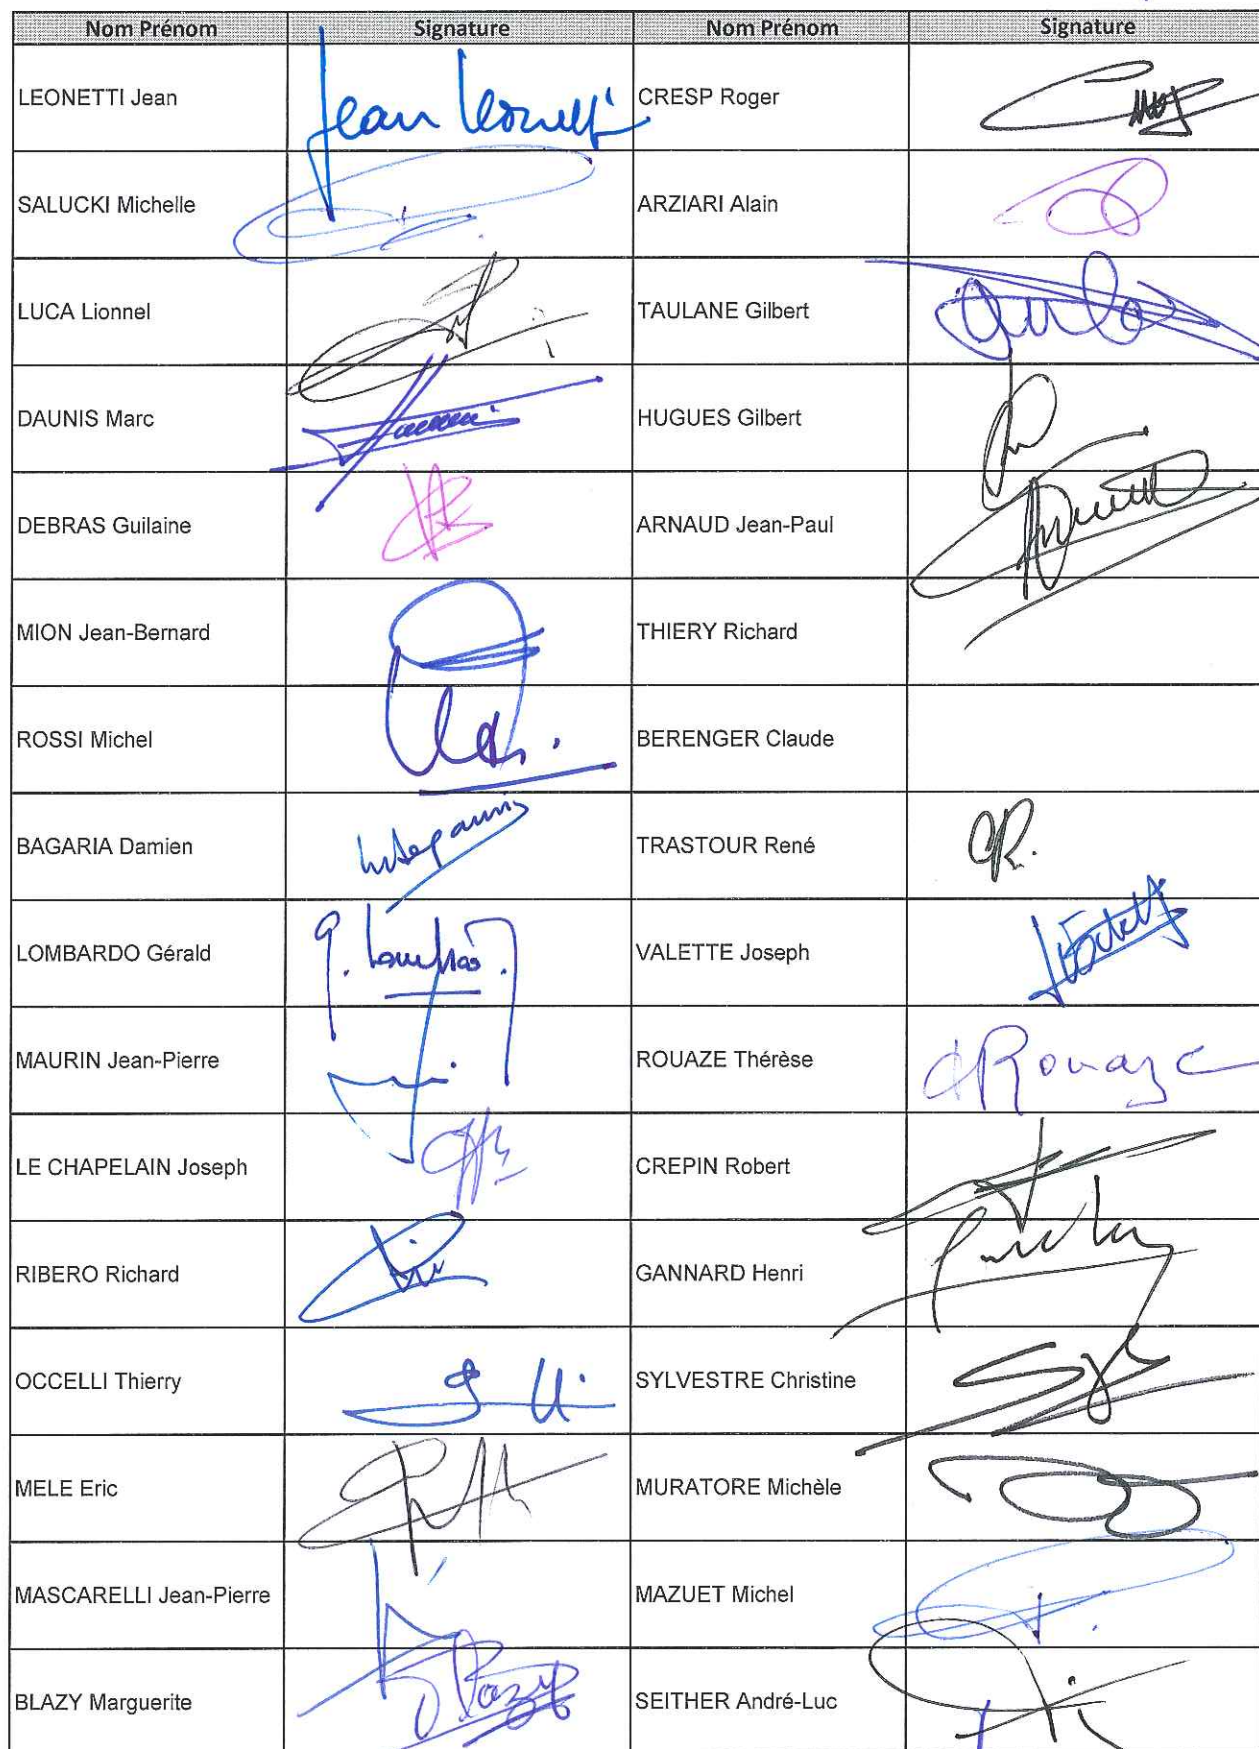 Nom Prénom Signature Nom Prénom Signature
LEONETTI Jean Jean Leonetti CRESP Roger
SALUCKI Michelle ARZIARI Alain
LUCA Lionnel TAULANE Gilbert
DAUNIS Marc HUGUES Gilbert
DEBRAS Guilaine ARNAUD Jean-Paul
MION Jean-Bernard THIERY Richard
ROSSI Michel BERENGER Claude
BAGARIA Damien TRASTOUR René
LOMBARDO Gérald VALETTE Joseph
MAURIN Jean-Pierre ROUAZE Thérèse Rouaze
LE CHAPELAIN Joseph CREPIN Robert
RIBERO Richard GANNARD Henri
OCCELLI Thierry SYLVESTRE Christine
MELE Eric MURATORE Michèle
MASCARELLI Jean-Pierre MAZUET Michel
BLAZY Marguerite Blazy SEITHER André-Luc